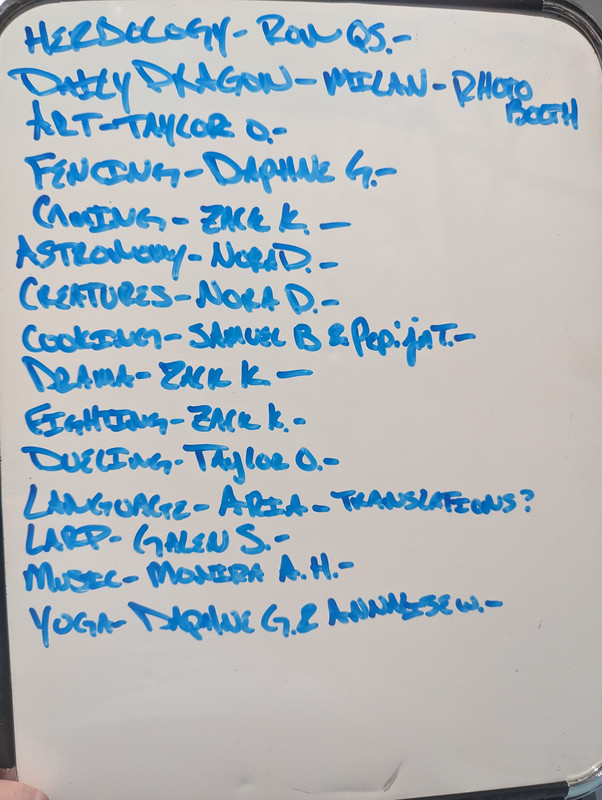 HERBOLOGY - RON QS. -
DAILY DRAGON - MILAN - PHOTO
BOOTH
ART - TAYLOR O. -
FENCING - DAPHNE G. -
GAMING - ZACK K. -
ASTRONOMY - NORA D. -
CREATURES - NORA D. -
COOKING - SAMUEL B & Pepijn T. -
DRAMA - ZACK K. -
FIGHTING - ZACK K. -
DUELING - TAYLOR O. -
LANGUAGE - ARIA - TRANSLATIONS?
LARP - GALEN S. -
MUSIC - MONIRA A.H. -
YOGA - DAPHNE G. & ANNALISE W. -